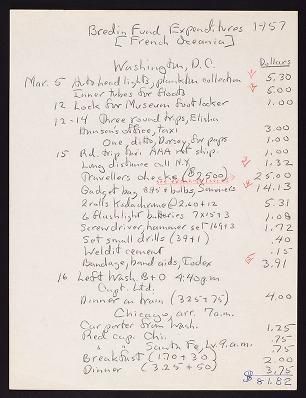 Bredin Fund Expenditures 1957
[French Oceania]
Washington, D.C. Dollars
Mar. 5 Auto head lights, plankton collection 5.30
Inner tubes for floats 6.00
12 Lock for Museum foot locker 1.00
12-14 Three round trips, Elisha
Hanson's office, taxi 3.00
One, ditto, Dorsey, for paprs 1.00
15 Rd. trip fair. AAA ret. ship. 1.00
Long distance call N.Y. 1.32
Travellers checks ($2500) 25.00
Gadget bag 8.95 + bulbs, Sommers 14.13
2 rolls Kodachrome @ 2.60+12 5.31
6 flashlight batteries 7x15+3 1.08
Screwdriver, hammer set 169+3 1.72
Set small drills (39+1) .40
Weldit cement .15
Bandage, band aids, Iodex 3.91
16 Left Wash. B+O 4:40 p.m.
Capt. Ltd.
Dinner on train (3.25+75) 4.00
Chicago, arr. 7 a.m.
Car porter from Wash. 1.25
Red cap. Chi. .75
" " Santa Fe, Lv. 9 a.m. .75
Breakfast (1.70+30) 2.00
Dinner (3.25+50) 3.75
$81.82